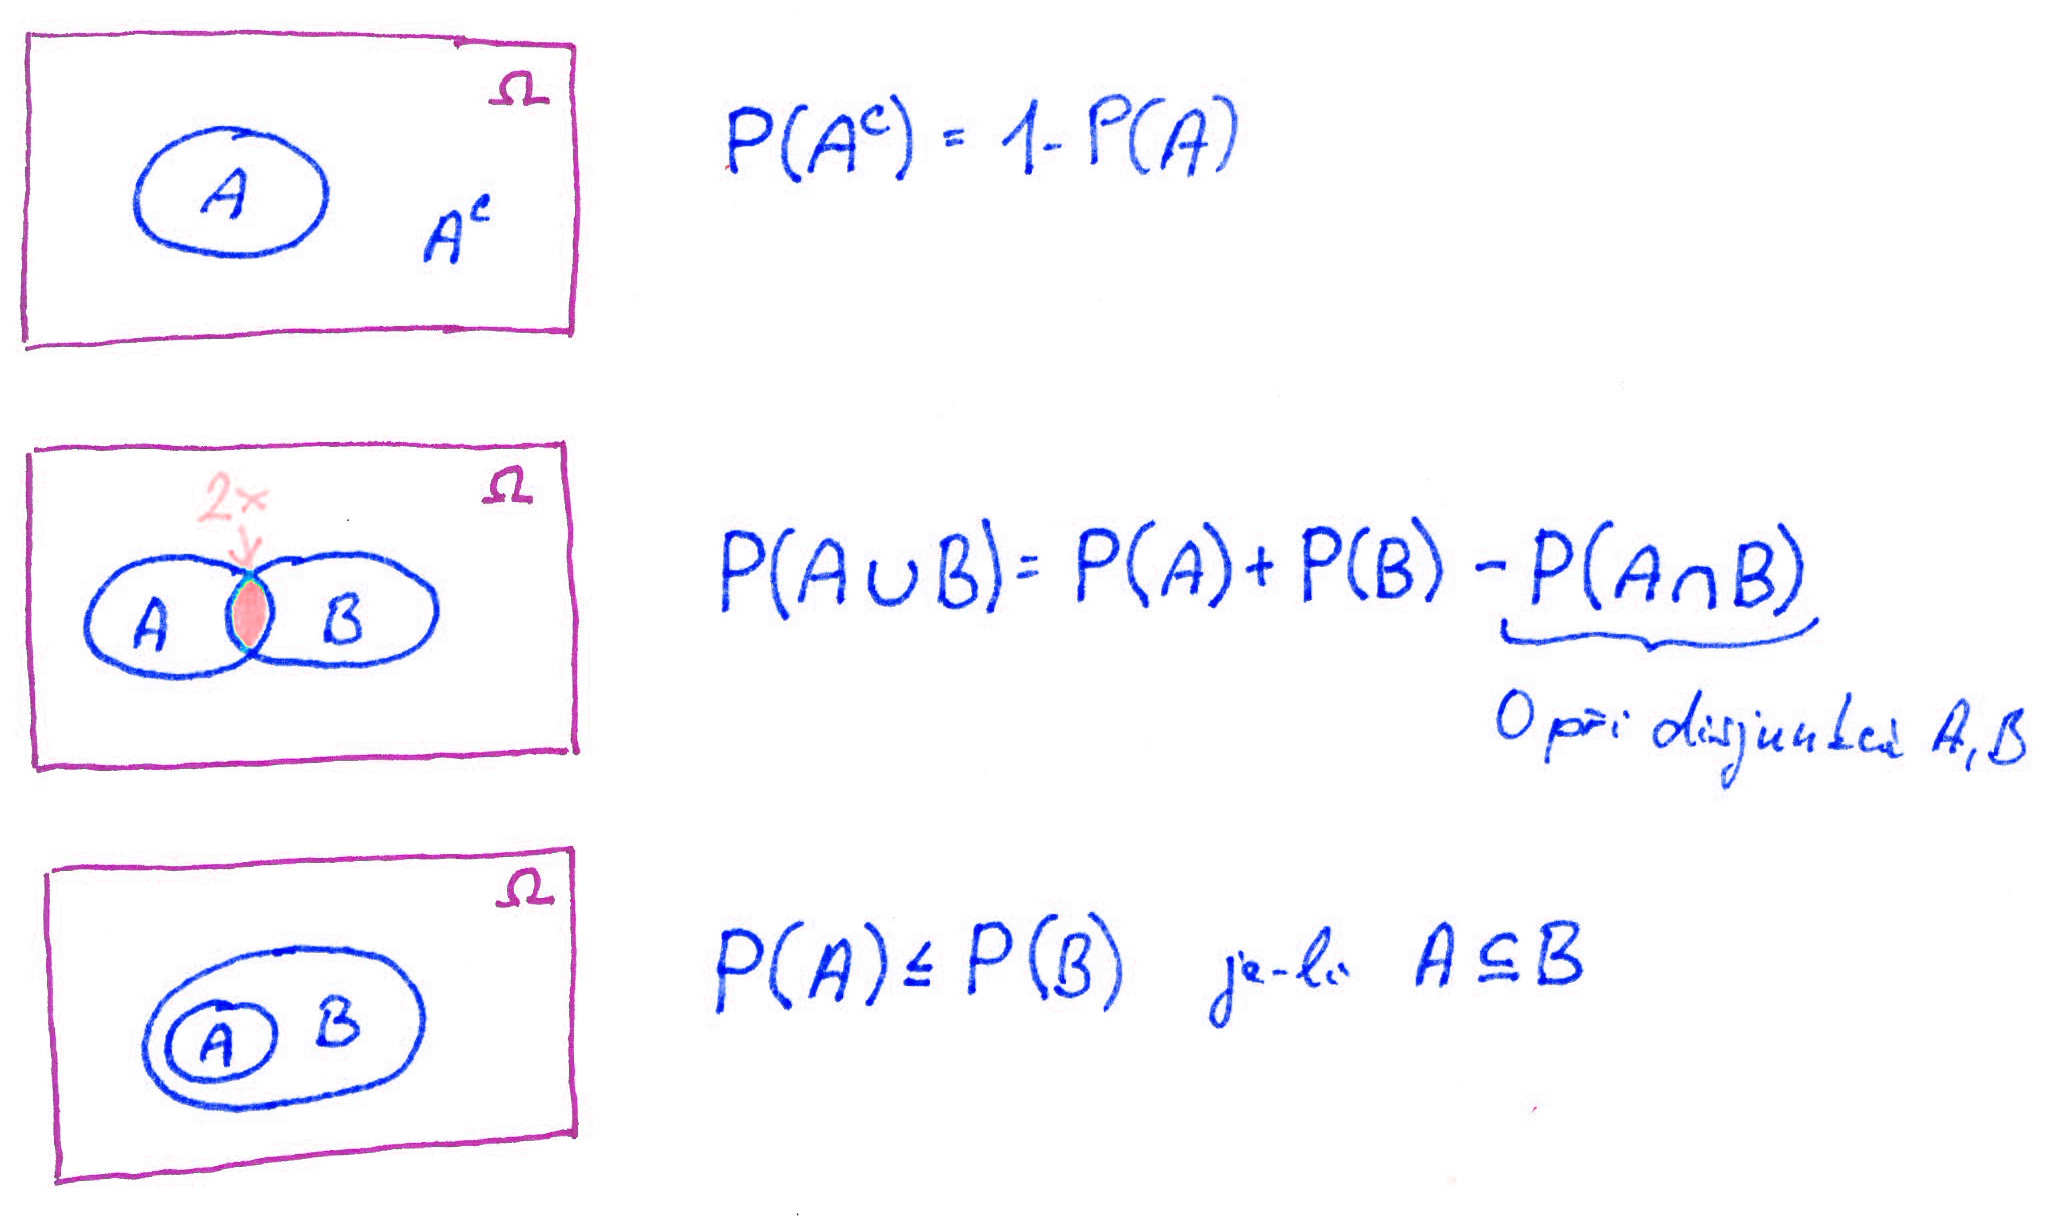 Ω
A
Aᶜ
P(Aᶜ) = 1 - P(A)
Ω
2×
A B
P(A∪B) = P(A) + P(B) - P(A∩B)
0 při disjunkci A, B
Ω
A B
P(A) ≤ P(B) je-li A ⊆ B